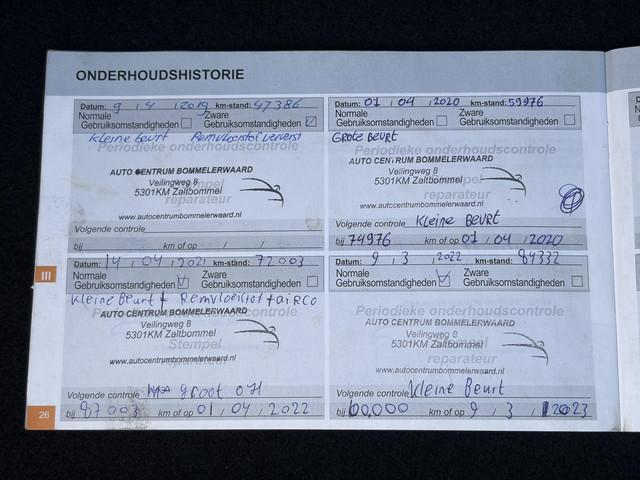 ONDERHOUDSHISTORIE
Datum: 9 / 4 / 2019 km-stand: 47386
Normale Gebruiksomstandigheden Zware Gebruiksomstandigheden
Kleine beurt Remvloeistof ververst
Periodieke onderhoudscontrole
AUTO CENTRUM BOMMELERWAARD
Veilingweg 8
5301KM Zaltbommel
Stempel
reparateur
www.autocentrumbommelerwaard.nl
Volgende controle
bij km of op / /
Datum: 01 / 04 / 2020 km-stand: 59976
Normale Gebruiksomstandigheden Zware Gebruiksomstandigheden
Grote Beurt
Periodieke onderhoudscontrole
AUTO CENTRUM BOMMELERWAARD
Veilingweg 8
5301KM Zaltbommel
Stempel
reparateur
www.autocentrumbommelerwaard.nl
Volgende controle Kleine Beurt
bij 74976 km of op 01 / 04 / 2020
Datum: 14 / 04 / 2021 km-stand: 72003
Normale Gebruiksomstandigheden Zware Gebruiksomstandigheden
Kleine Beurt + Remvloeistof + airco
Periodieke onderhoudscontrole
AUTO CENTRUM BOMMELERWAARD
Veilingweg 8
5301KM Zaltbommel
Stempel
reparateur
www.autocentrumbommelerwaard.nl
Volgende controle groot OH
bij 87003 km of op 01 / 04 / 2022
Datum: 9 / 3 / 2022 km-stand: 84332
Normale Gebruiksomstandigheden Zware Gebruiksomstandigheden
Periodieke onderhoudscontrole
AUTO CENTRUM BOMMELERWAARD
Veilingweg 8
5301KM Zaltbommel
Stempel
reparateur
www.autocentrumbommelerwaard.nl
Volgende controle Kleine Beurt
bij 100,000 km of op 9 / 3 / 2023
III
26